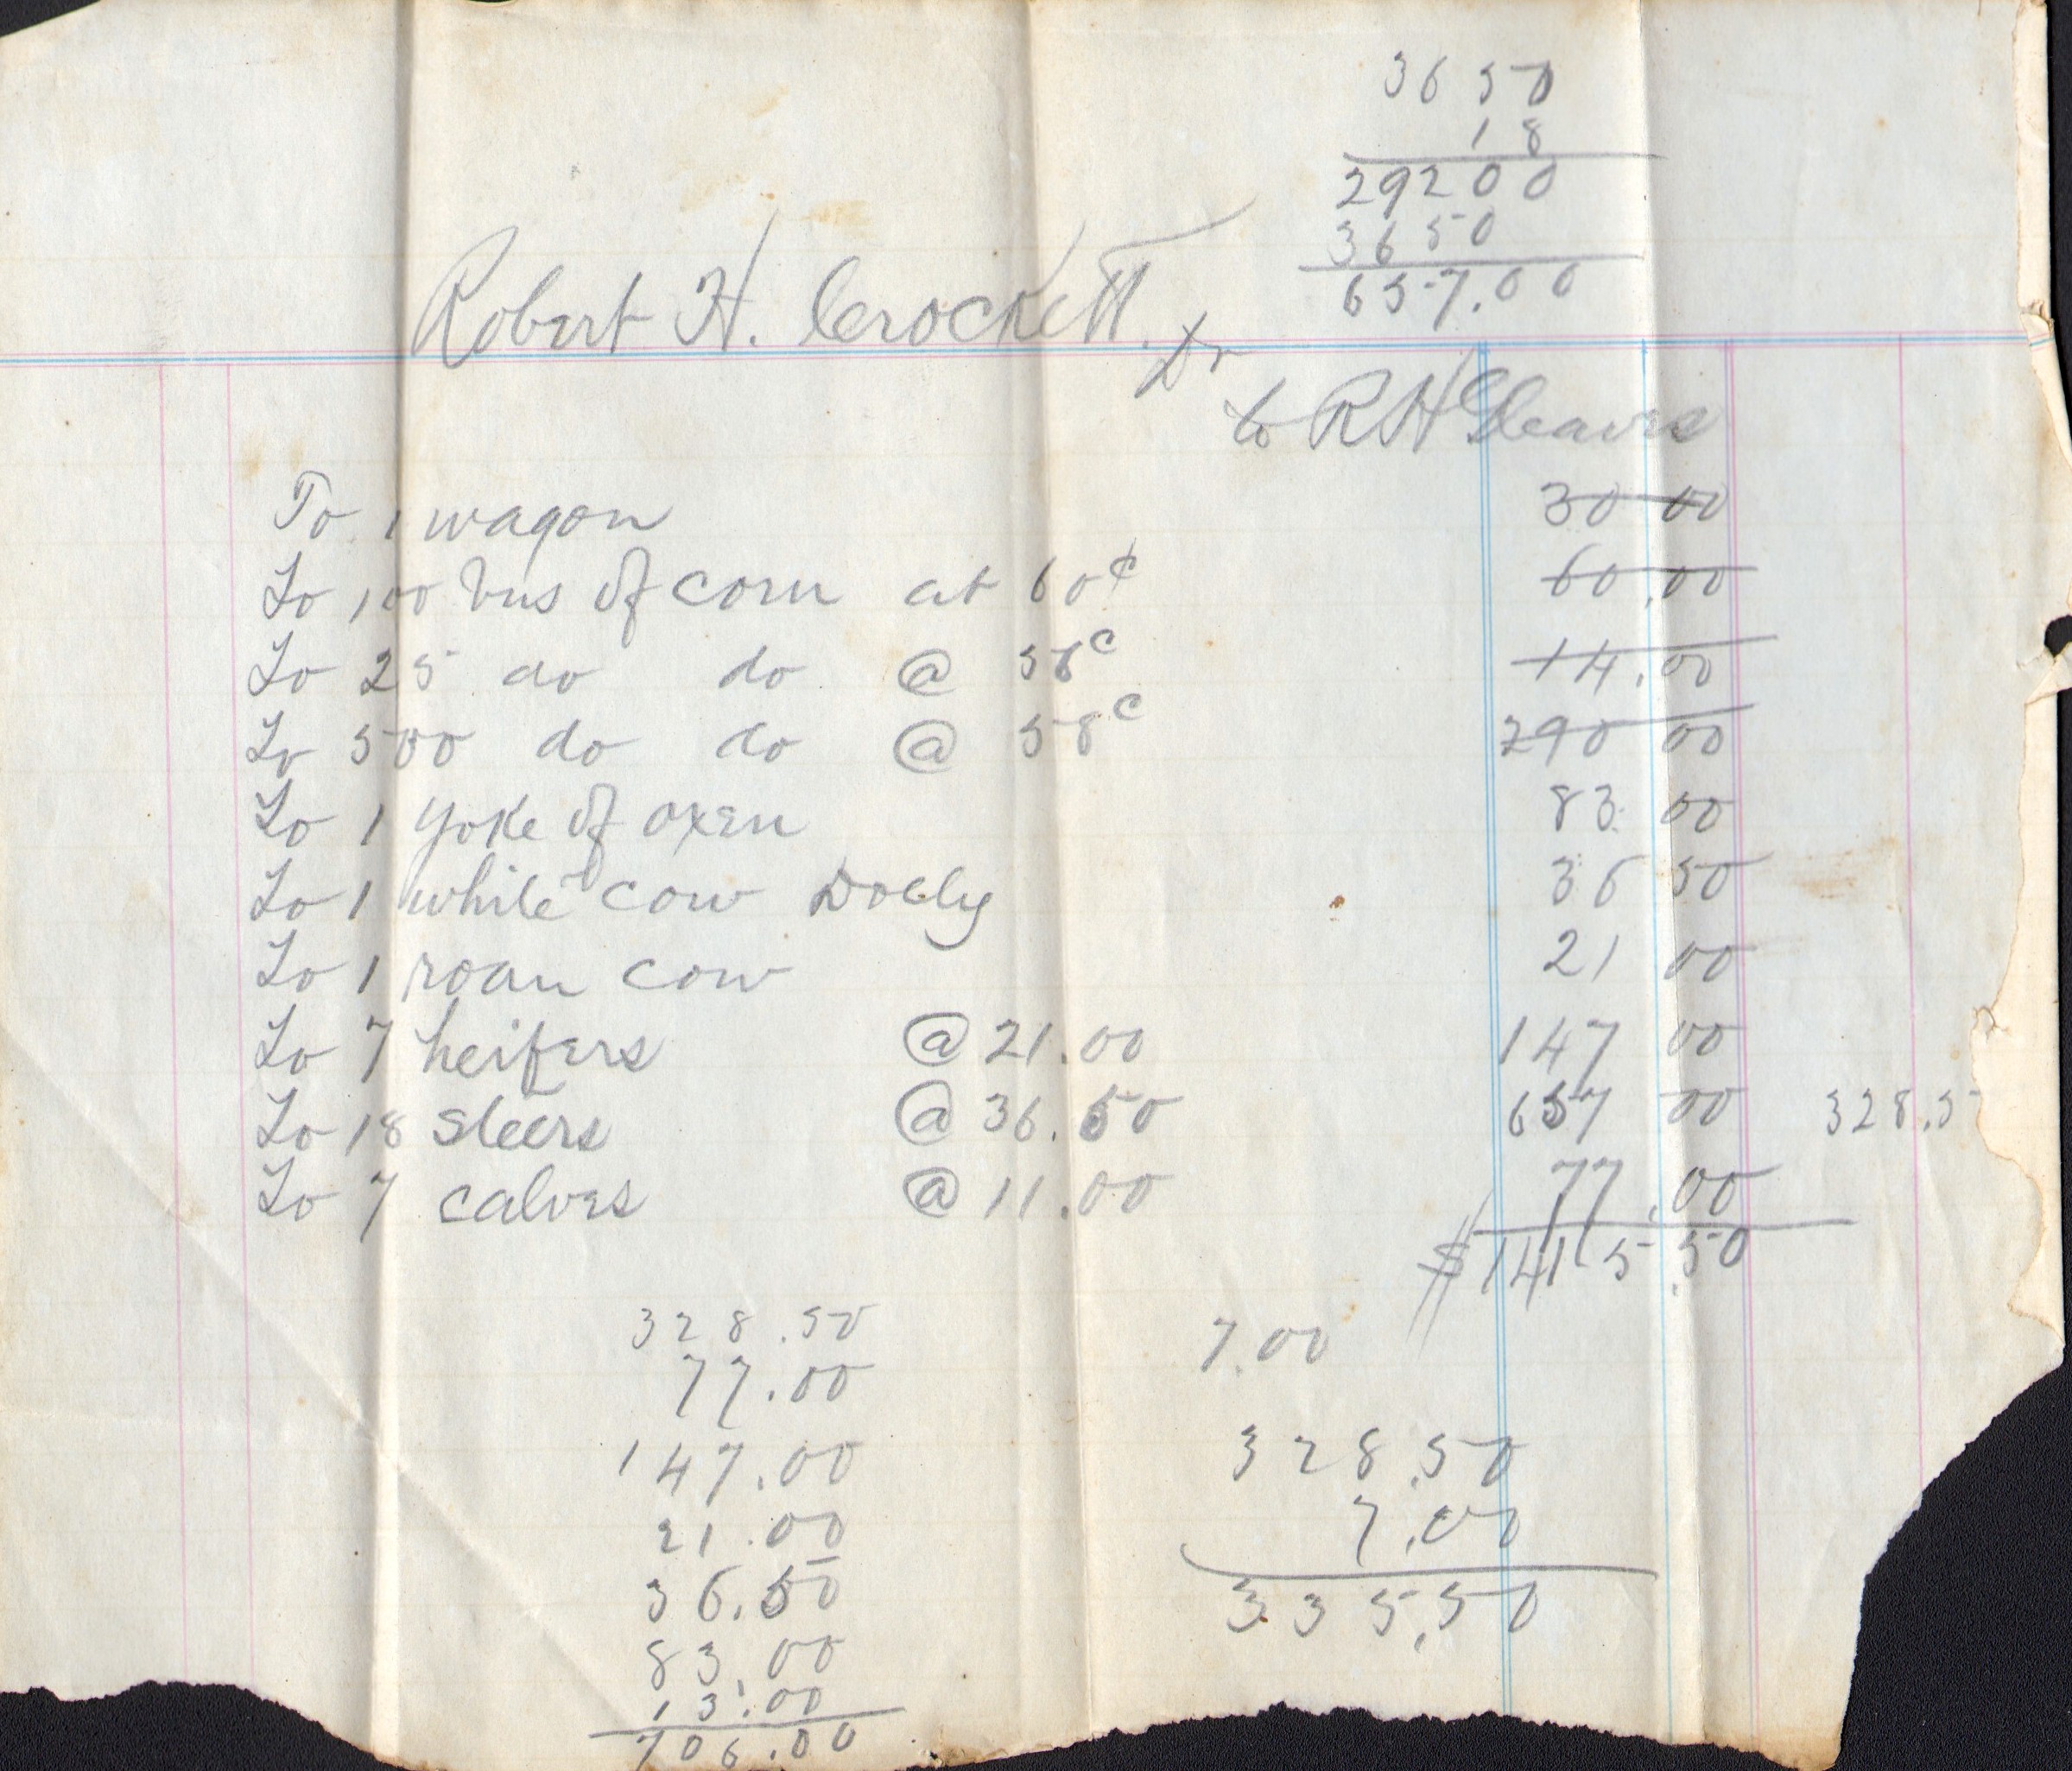 3650
18
29200
3650
657.00
Robert H. Crockett Dr
to R H Gleaves
To 1 wagon 30 00
To 100 bus of corn at 60¢ 60.00
To 25 do do @ 56c 14.00
To 500 do do @ 58c 290 00
To 1 yoke of oxen 83 00
To 1 white cow Dolly 36 50
To 1 roan cow 21 00
To 7 heifers @ 21.00 147 00
To 18 steers @ 36.50 657 00 328.5
To 7 calves @ 11.00 77.00
$1415.50
328.50
77.00
147.00
21.00
36.50
83.00
13.00
706.00
7.00
328.50
7.00
335.50